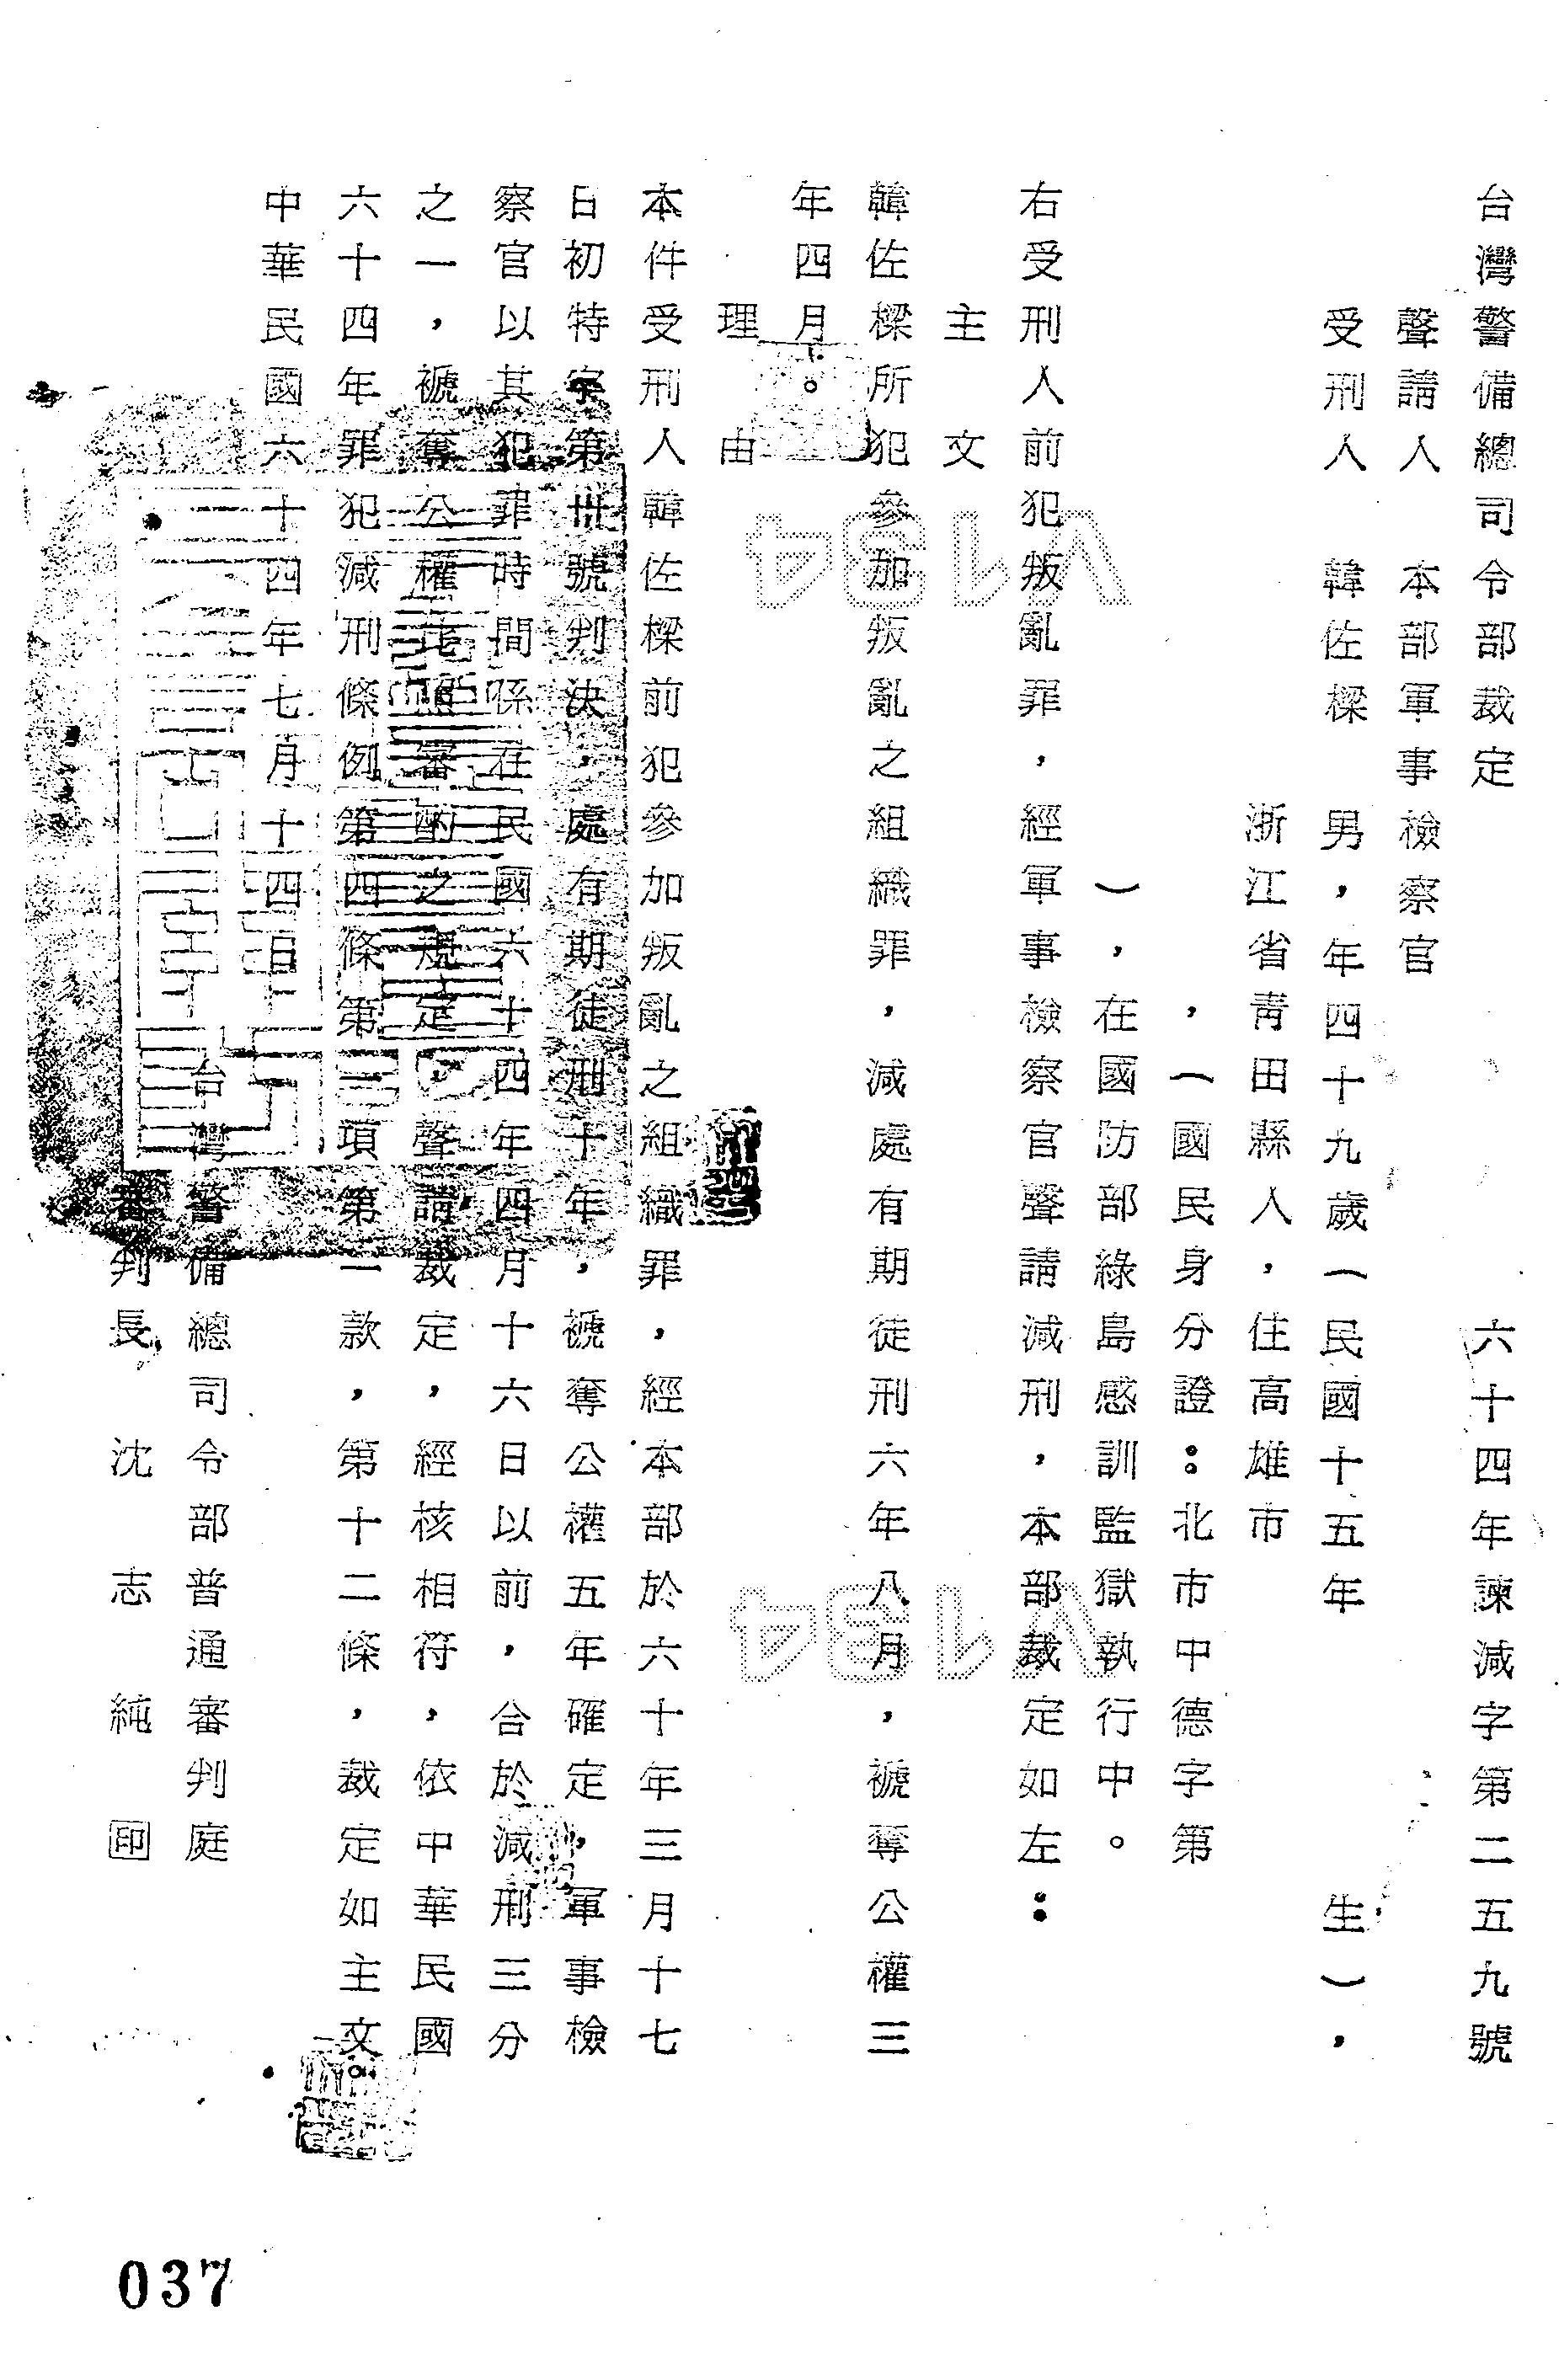 台灣警備總司令部裁定 六十四年諫減字第二五九號
聲請人 本部軍事檢察官
受刑人 韓佐樑 男，年四十九歲（民國十五年 生），
浙江省青田縣人，住高雄市
，（國民身分證：北市中德字第
），在國防部綠島感訓監獄執行中。
右受刑人前犯叛亂罪，經軍事檢察官聲請減刑，本部裁定如左：
主文
韓佐樑所犯參加叛亂之組織罪，減處有期徒刑六年八月，褫奪公權三
年四月。
理由
本件受刑人韓佐樑前犯參加叛亂之組織罪，經本部於六十年三月十七
日初特字第卅號判決，處有期徒刑十年，褫奪公權五年確定，軍事檢
察官以其犯罪時間係在民國六十四年四月十六日以前，合於減刑三分
之一，褫奪公權比照審酌之規定，聲請裁定，經核相符，依中華民國
六十四年罪犯減刑條例第四條第一項第二款，第十二條，裁定如主文。
中華民國六十四年七月十四日
台灣警備總司令部普通審判庭
審判長 沈志純 印
V134
V134
037